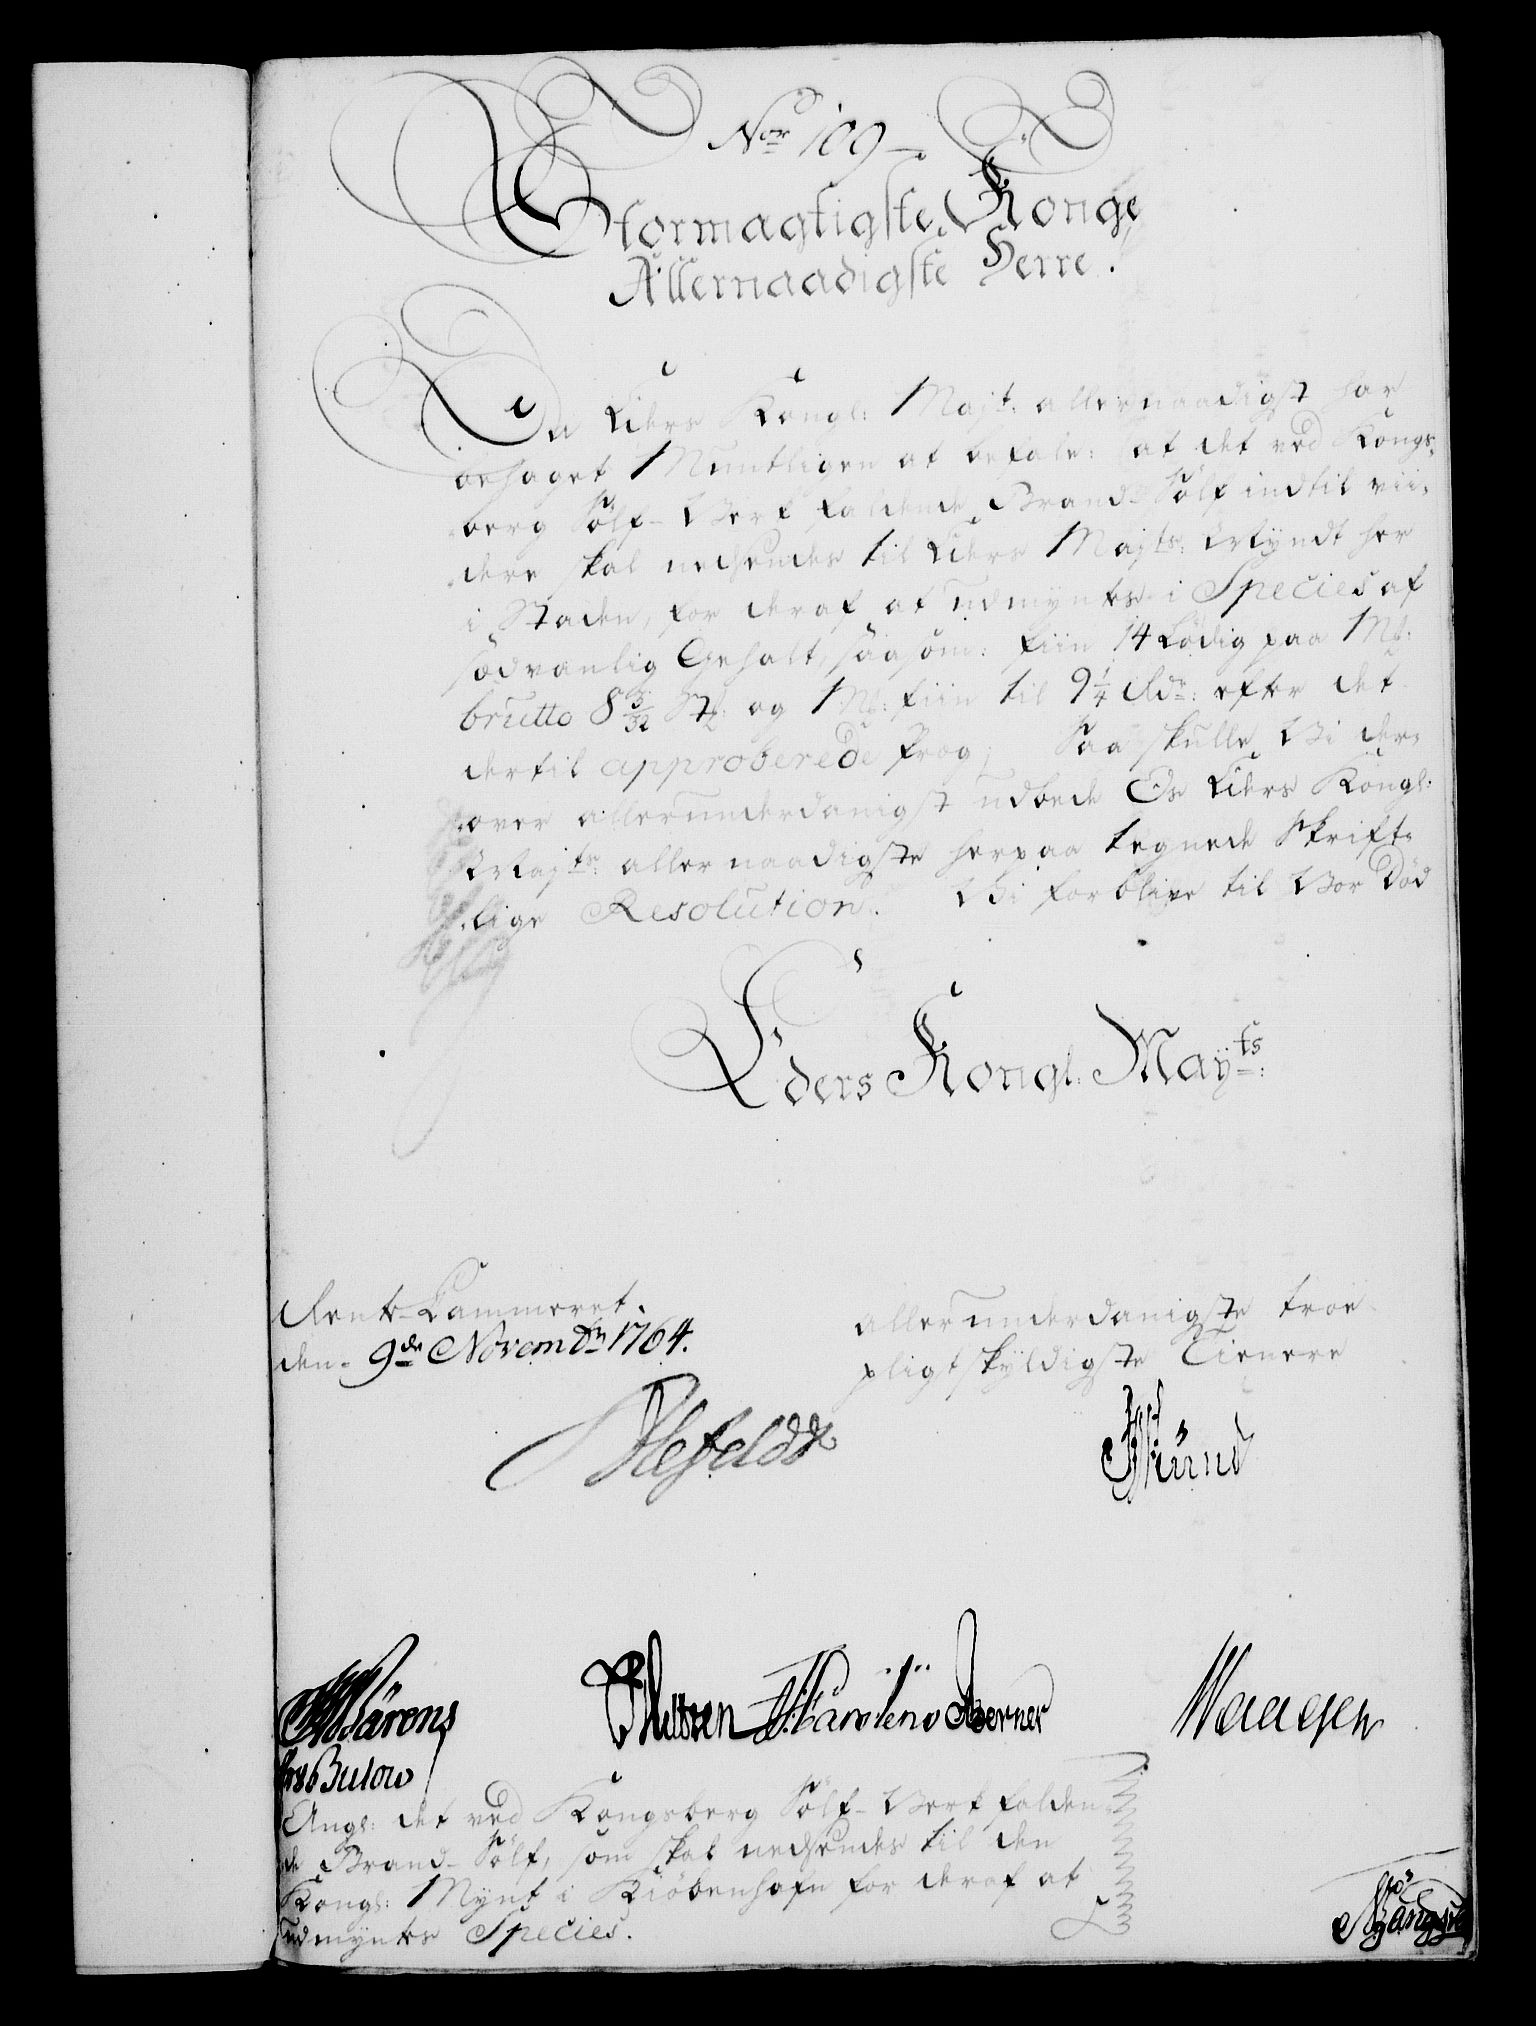 Nor 109
Stormagtigste Konge
Allernaadigste Herre.
Da Eders Kongl: Majt: allernaadigst har
behaget Mundtligen at befale: at det ved Kongs-
berg Sölf-Verk faldende Brand-Sölf indtil vii-
dere skal nedsendes til Eders Majts: Myndt her
i Staden, for deraf at udmyntes i Species af
sædvanlig Gehalt, saasom: fiin 14 Lödig paa 1 M{k}:
brutto 8 3/32 St: og 1 M{k}: fiin til 9 1/4 Rdr: efter det
dertil approberede Præg; Saa skulle Vi der-
over allerunderdanigst udbede Os Eders Kongl:
Majts: allernaadigste herpaa tegnede Skrift-
lige Resolution. Vi forblive til Vor Död
Eders Kongl: Mayts:
Rente-Kammeret.
den 9de Novembr 1764.
allerunderdanigste troe
pligtskyldigste Tienere
Ahlefeldt
Bulow
Berner
Waagen
Angl: det ved Kongsberg Sölf-Verk falden-
de Brand-Sölf, som skal nedsendes til den
Kongl: Mynt i Kiöbenhafn for deraf at
udmyntes Species.